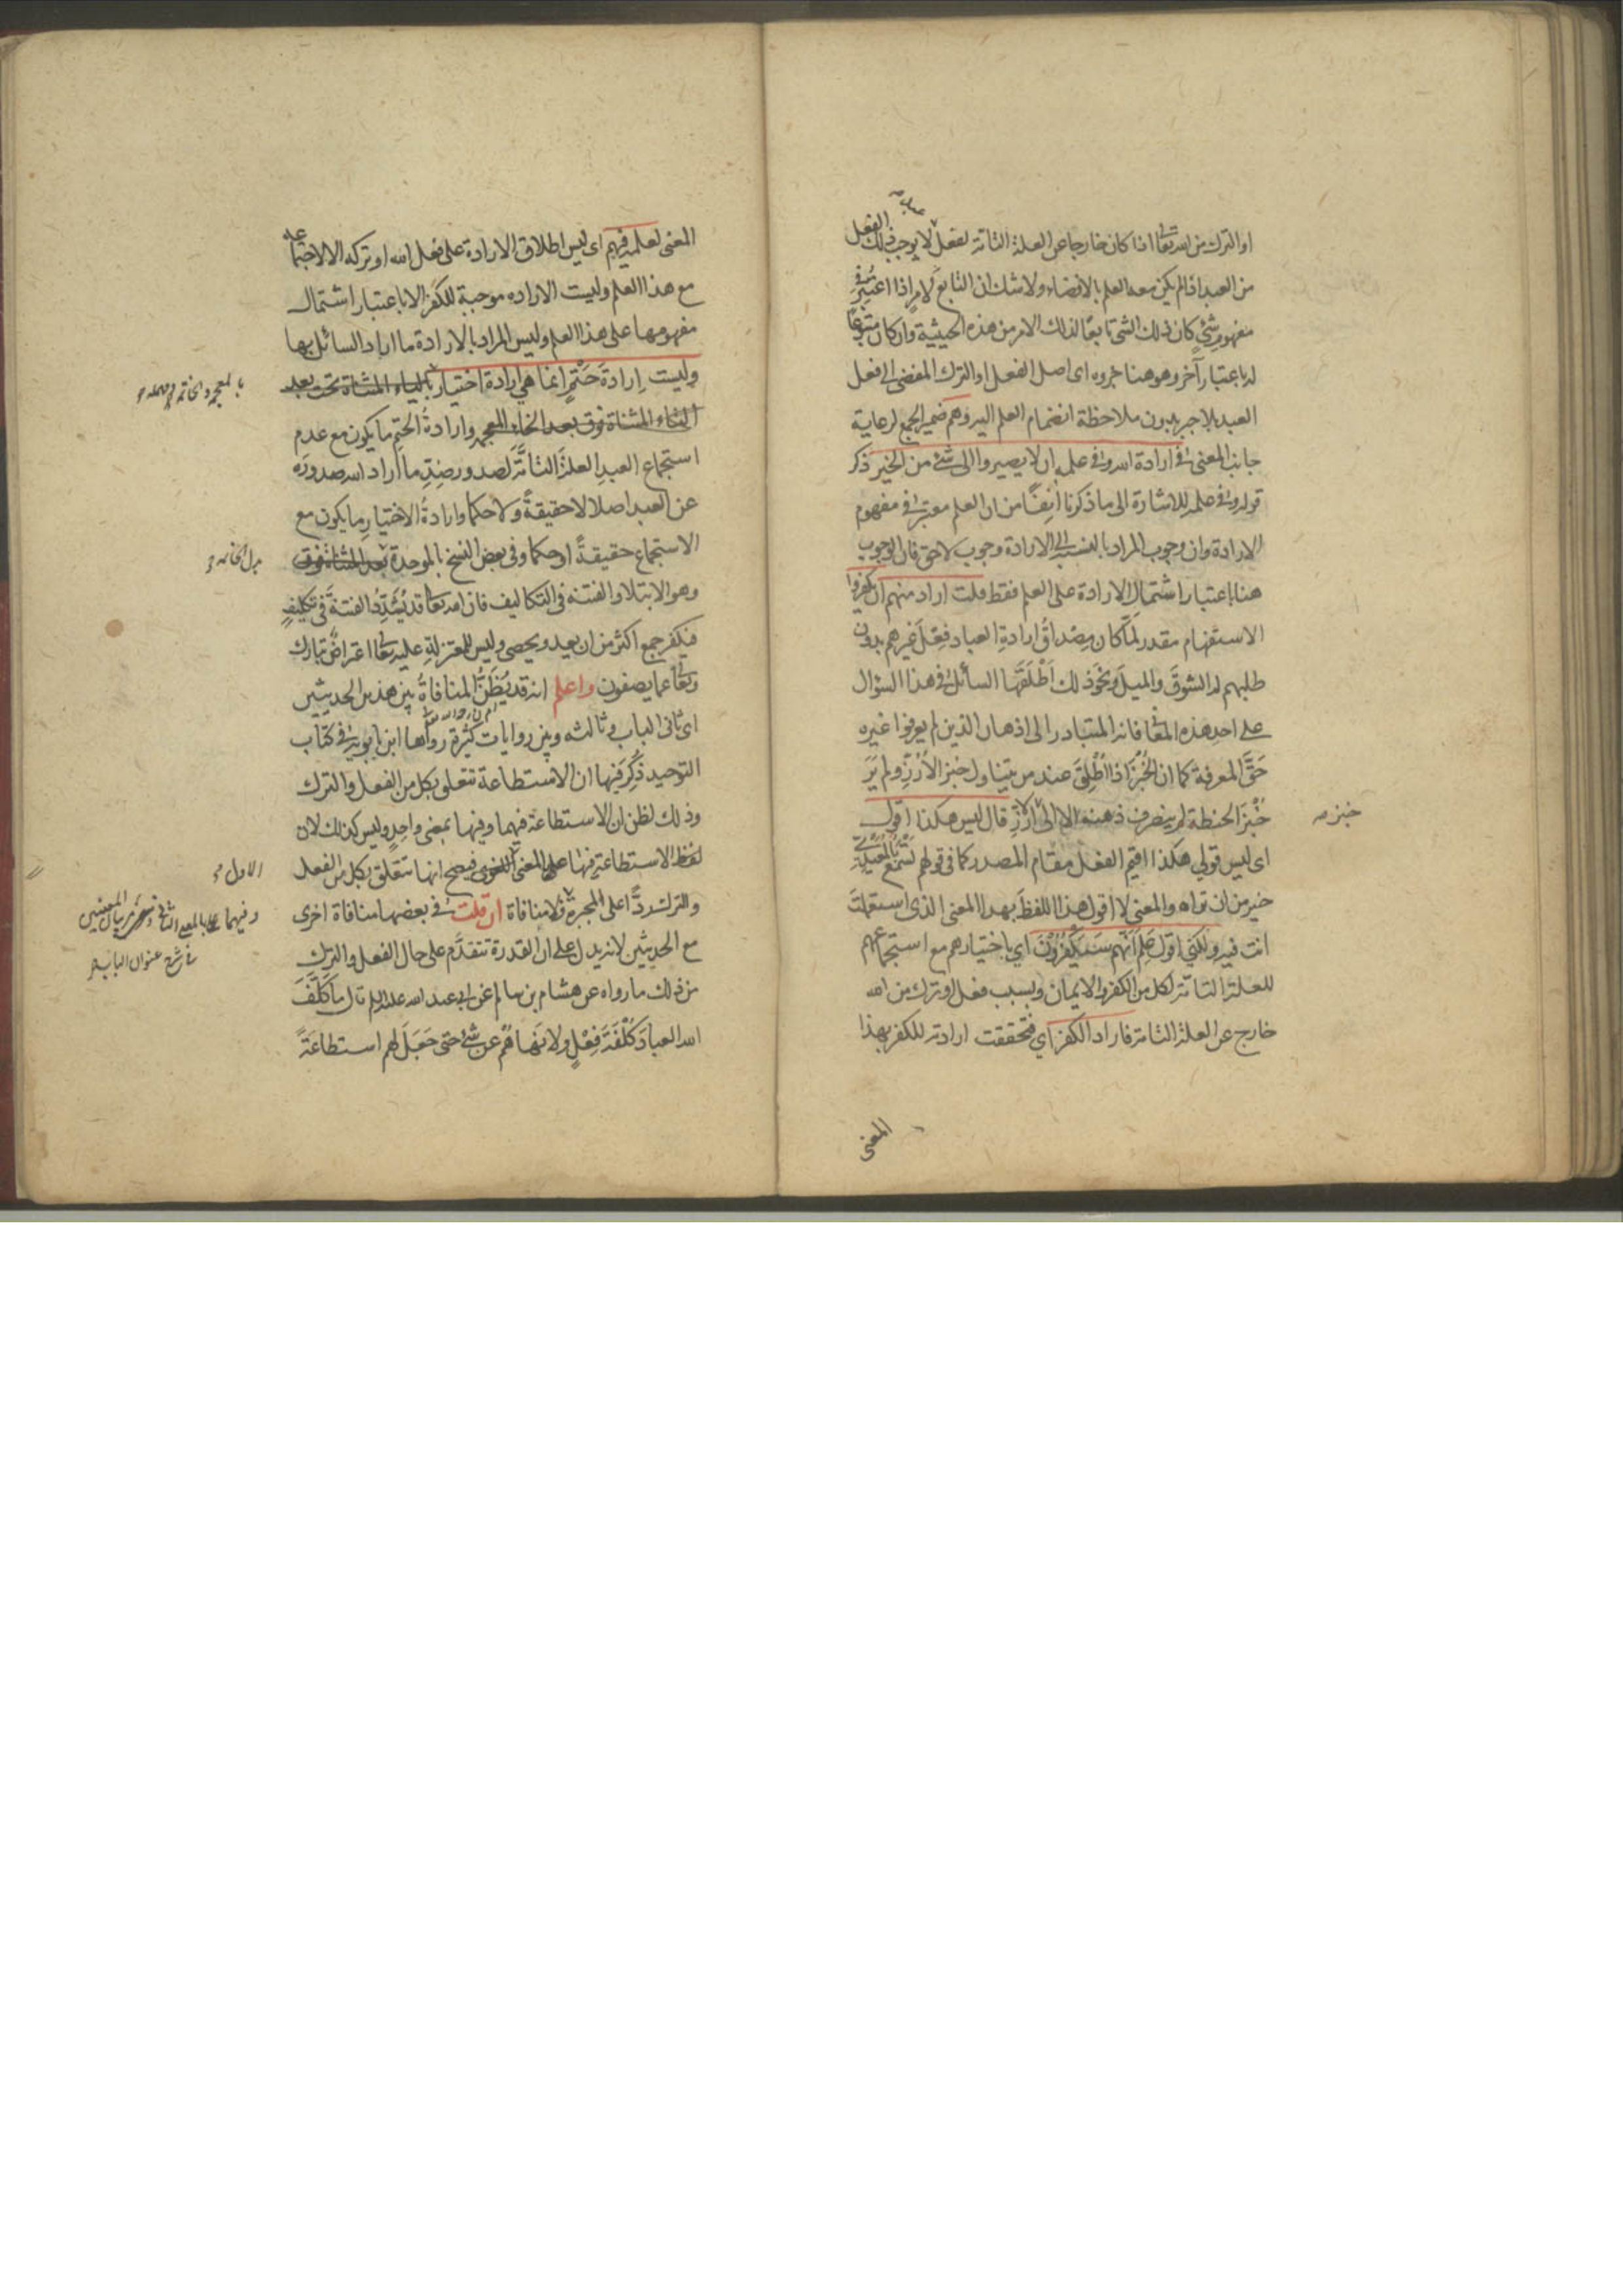 او الترك من الله تعا اذا كان خارجا عن العلة التامة لفعل لا يوجب ذلك الفعل
من العبد اذا لم يكن معه العلم بالافضاء ولا شك ان التابع لامر اذا اعتبر في
مفهوم شئ كان ذلك الشئ تابعا لذلك الامر من هذه الحيثية وان كان متبوعا
له باعتبار آخر وهو هنا جزوه اى اصل الفعل او الترك المفضى الى فعل
العبد بلا جبر بدون ملاحظة انضمام العلم اليه وهم ضمير الجمع لرعاية
جانب المعنى في ارادة الله وفي علمه ان لا يصيروا الى شئ من الخير ذكر
قوله وفي علمه للاشارة الى ما ذكرنا آنفا من ان العلم معتبر في مفهوم
الارادة وان وجوب المراد بالنسبة الى الارادة وجوب لاحق فان الوجوب
هنا باعتبار اشتمال الارادة على العلم فقط قلت اراد منهم ان يكفروا
الاستفهام مقدر لما كان مصداق ارادة العباد فعل غيرهم بدون
طلبهم له الشوق والميل ونحو ذلك اطلقها السائل في هذا السؤال
على احد هذه المعا فانه المتبادر الى اذهان الذين لم يعرفوا غيره
حق المعرفة كما ان الخبز اذا اطلق عند من يتناول خبز الارز ولم ير
خبز الحنطة لم ينصرف ذهنه الا الى الارز قال ليس هكذا اقول
خبز صح
اى ليس قولي هكذا اقيم الفعل مقام المصدر كما في قولهم تسمع بالمعيدي
خير من ان تراه والمعنى لا اقول هذا اللفظ بهذا المعنى الذى استعملت
انت فيه ولكني اقول علم انهم سيكفرون اي باختيارهم مع استجماعهم
للعلة التامة لكل من الكفر والايمان وبسبب فعل او ترك من الله
خارج عن العلة التامة فاراد الكفر اي فتحققت ارادته للكفر بهذا
المعنى
المعنى لعلمه فيهم اى ليس اطلاق الارادة على فعل الله او تركه الا لاجتماعه
مع هذا العلم وليست الاراده موجبة للكفر الا باعتبار اشتمال
مفهومها على هذا العلم وليس المراد بالارادة ما اراد السائل بها
وليست ارادة حتم انما هي ارادة اختيار بالياء المثناة تحت بعد
التاء المثناة فوق بعد الخاء المعجمة وارادة الحتم ما يكون مع عدم
استجماع العبد العلة التامة لصدور ضد ما اراد الله صدوره
عن العبد اصلا لا حقيقة ولا حكما وارادة الاختيار ما يكون مع
الاستجماع حقيقة او حكما وفي بعض النسخ بالموحدة بعد المثناة فوق
بدل الخاتمة
وهو الابتلاء والفتنه في التكاليف فان الله تعا قد يشدد الفتنة في تكليف
فيكفر جمع اكثر من ان يعد ويحصى وليس للمعتزلة عليه تعا اعتراض تبارك
وتعا عما يصفون واعلم انه قد يظن المنافاة بين هذين الحديثين
اى ثانى الباب وثالثه وبين روايات كثيرة رواها ابن بابويه في كتاب
التوحيد ذكر فيها ان الاستطاعة تتعلق بكل من الفعل والترك
وذلك لظن ان الاستطاعة فيهما وفيها بمعنى واحد وليس كذلك لان
لفظ الاستطاعة فيها على المعنى اللغوى فيصح انها تتعلق بكل من الفعل
الاول
والترك ردا على المجبرة فلا منافاة ان قلت في بعضها منافاة اخرى
وفيهما بالمعنى الثاني بيان المعنيين
في شرح عنوان الباب
مع الحديثين لانه يدل على ان القدرة تتقدم على حال الفعل والترك
من ذلك ما رواه عن هشام بن سالم عن ابي عبد الله عليه السلم قال ما كلف
الله العباد كلفة فعل ولا نهاهم عن شئ حتى جعل لهم استطاعة